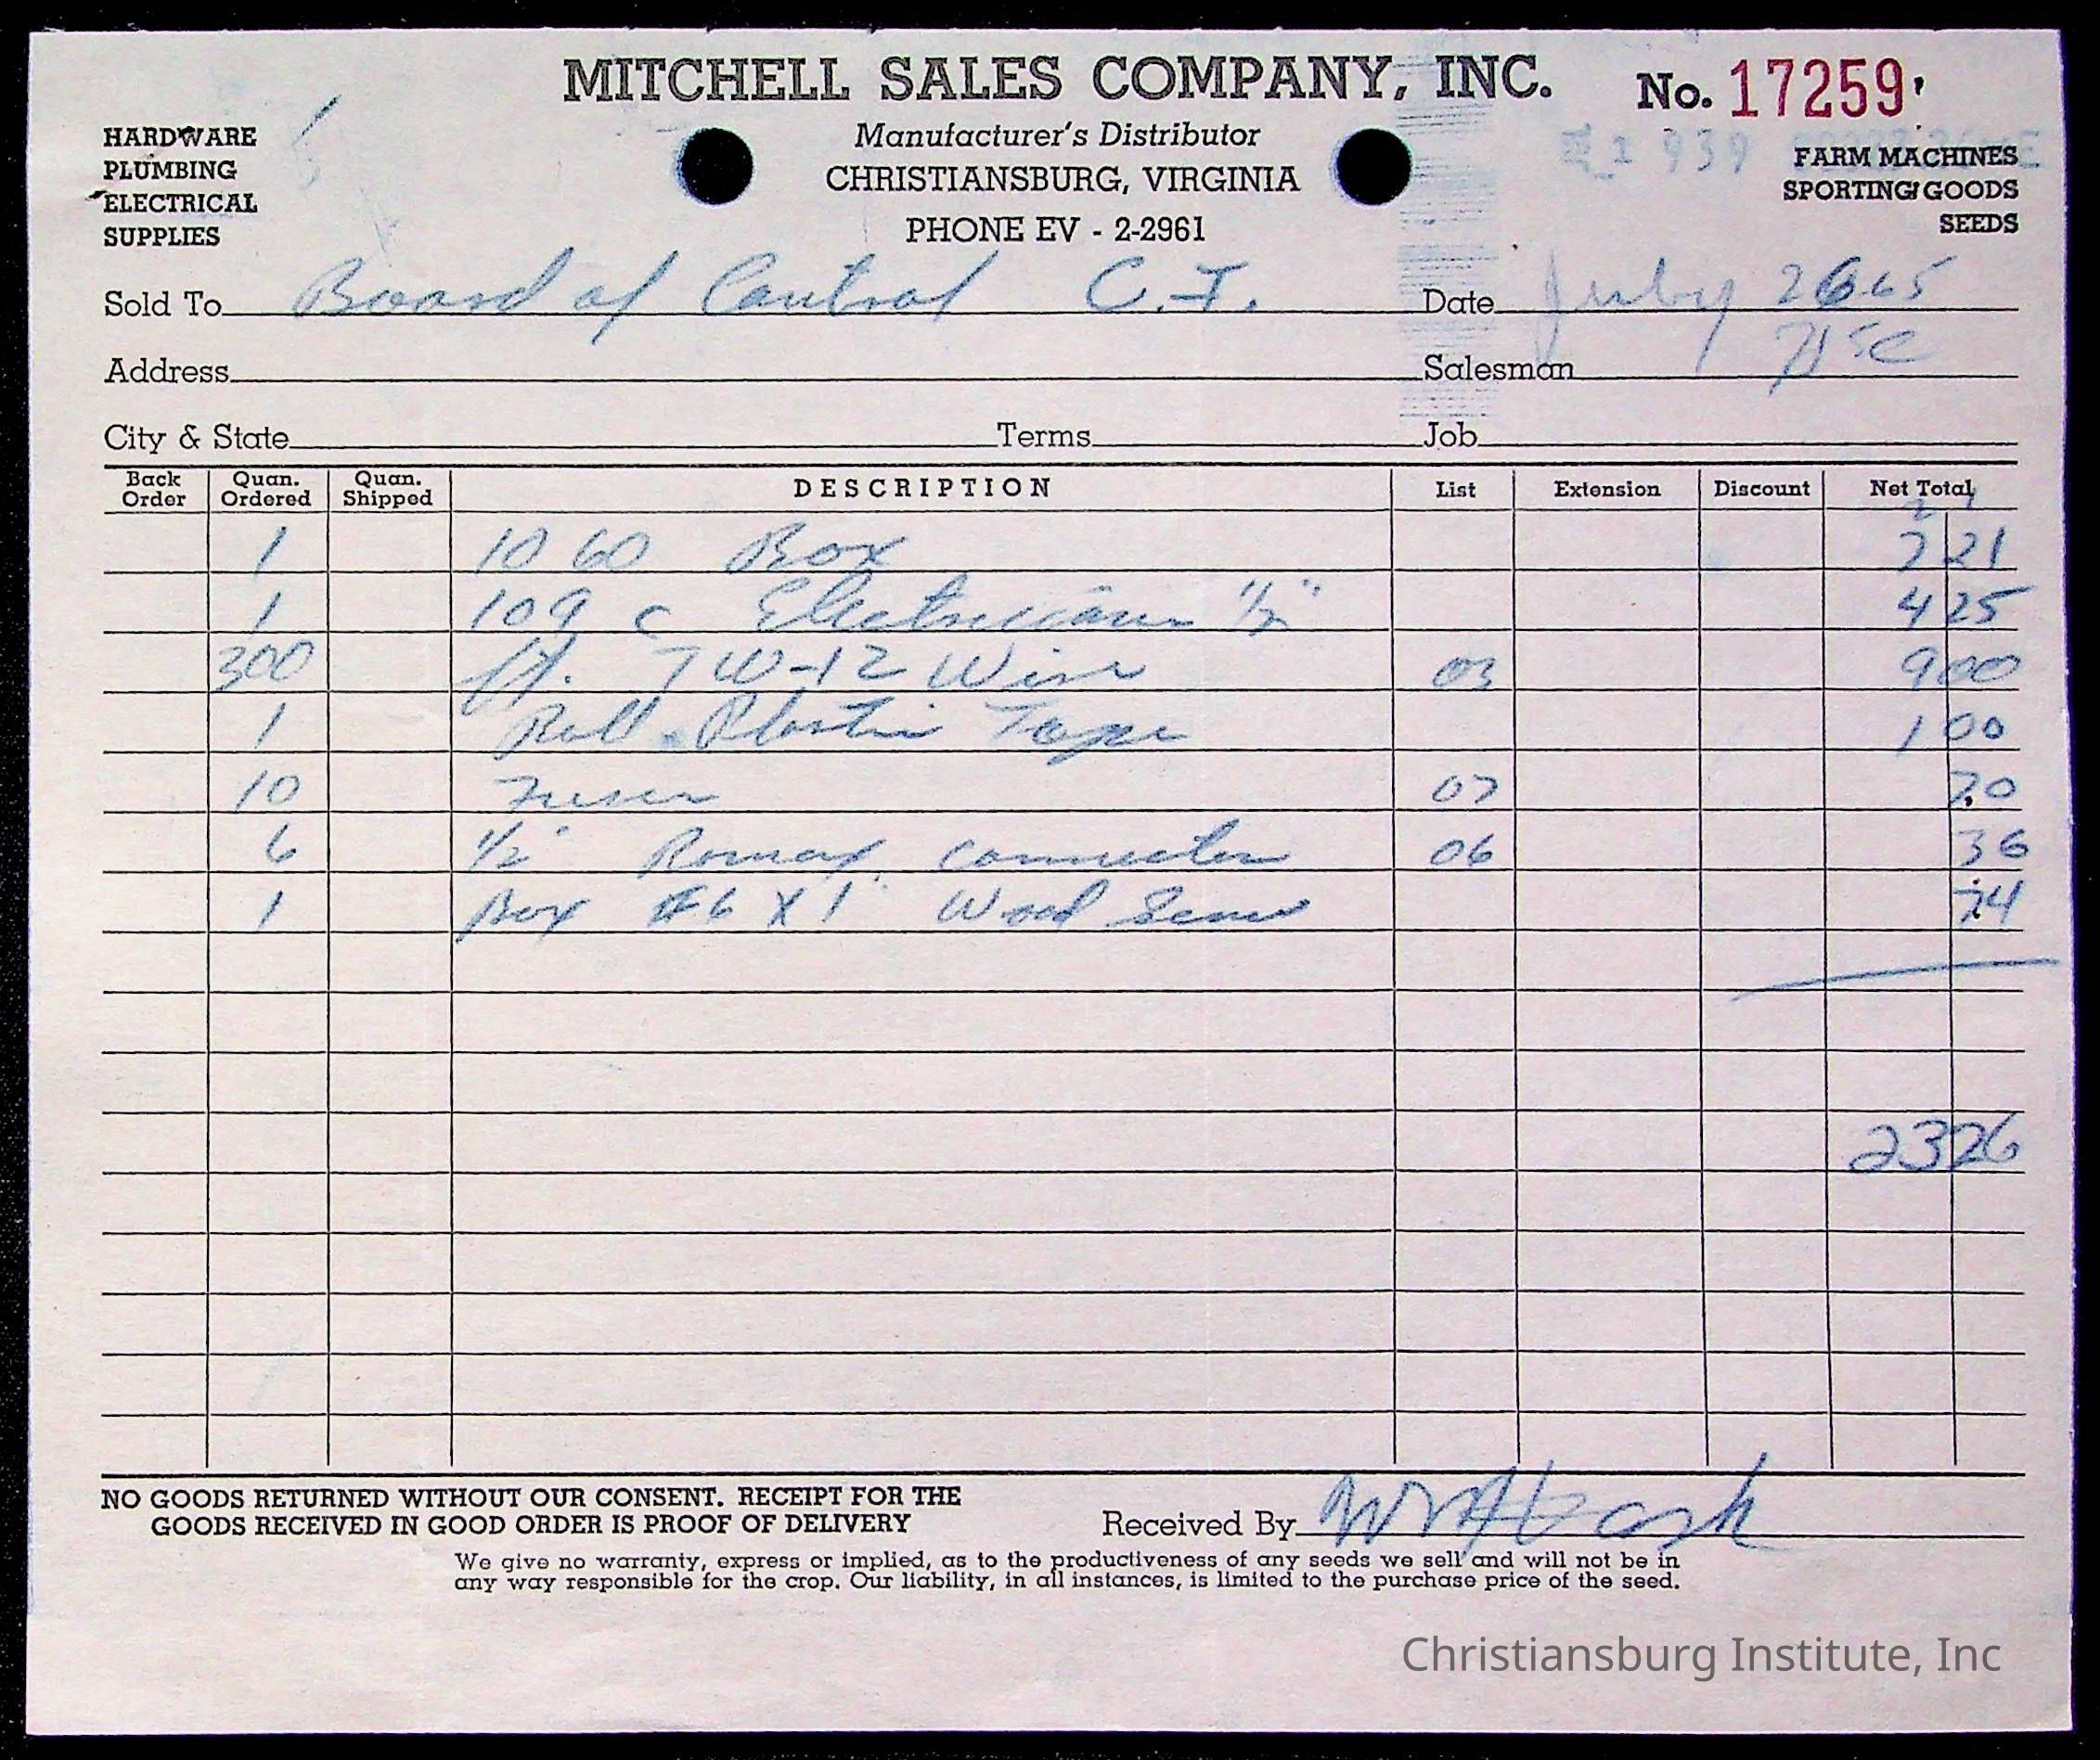 MITCHELL SALES COMPANY, INC.
No. 17259
HARDWARE
PLUMBING
ELECTRICAL
SUPPLIES
Manufacturer's Distributor
CHRISTIANSBURG, VIRGINIA
PHONE EV - 2-2961
FARM MACHINES
SPORTING GOODS
SEEDS
Sold To Board of Control C.I. Date July 26 65
Address Salesman
City & State Terms Job
Back Order Quan. Ordered Quan. Shipped DESCRIPTION List Extension Discount Net Total
1 1060 Box 7 21
1 109 C 1/2" 4 25
300 ft. TW-12 Wire 03 9 00
1 Roll Plastic Tape 1 00
10 Fuses 07 70
6 1/2" Romax Connectors 06 36
1 Box #6 X 1" Wood Screws 74
23 26
NO GOODS RETURNED WITHOUT OUR CONSENT. RECEIPT FOR THE
GOODS RECEIVED IN GOOD ORDER IS PROOF OF DELIVERY
Received By
We give no warranty, express or implied, as to the productiveness of any seeds we sell and will not be in
any way responsible for the crop. Our liability, in all instances, is limited to the purchase price of the seed.
Christiansburg Institute, Inc